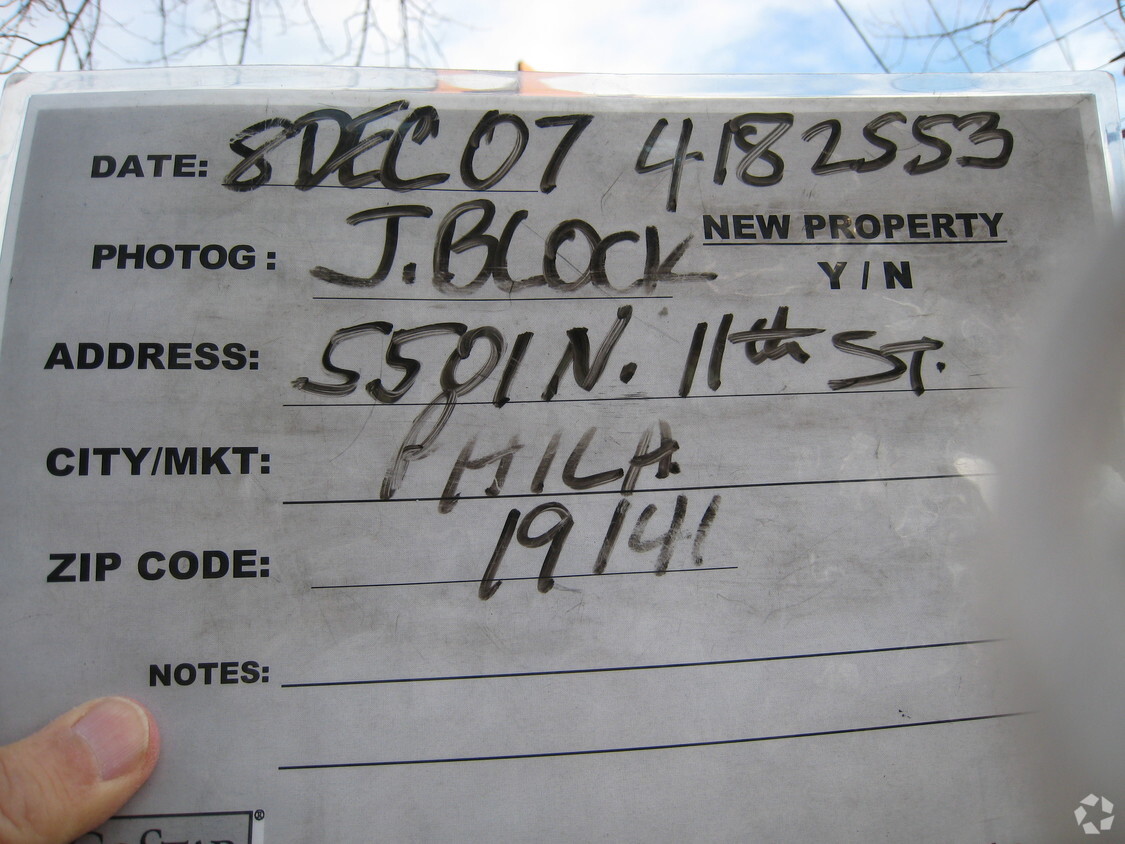 DATE: 8 DEC 07 4182553
PHOTOG: J. BLOCK
NEW PROPERTY
Y / N
ADDRESS: 5501 N. 11th ST.
CITY/MKT: PHILA
ZIP CODE: 19141
NOTES:
COSTAR ®